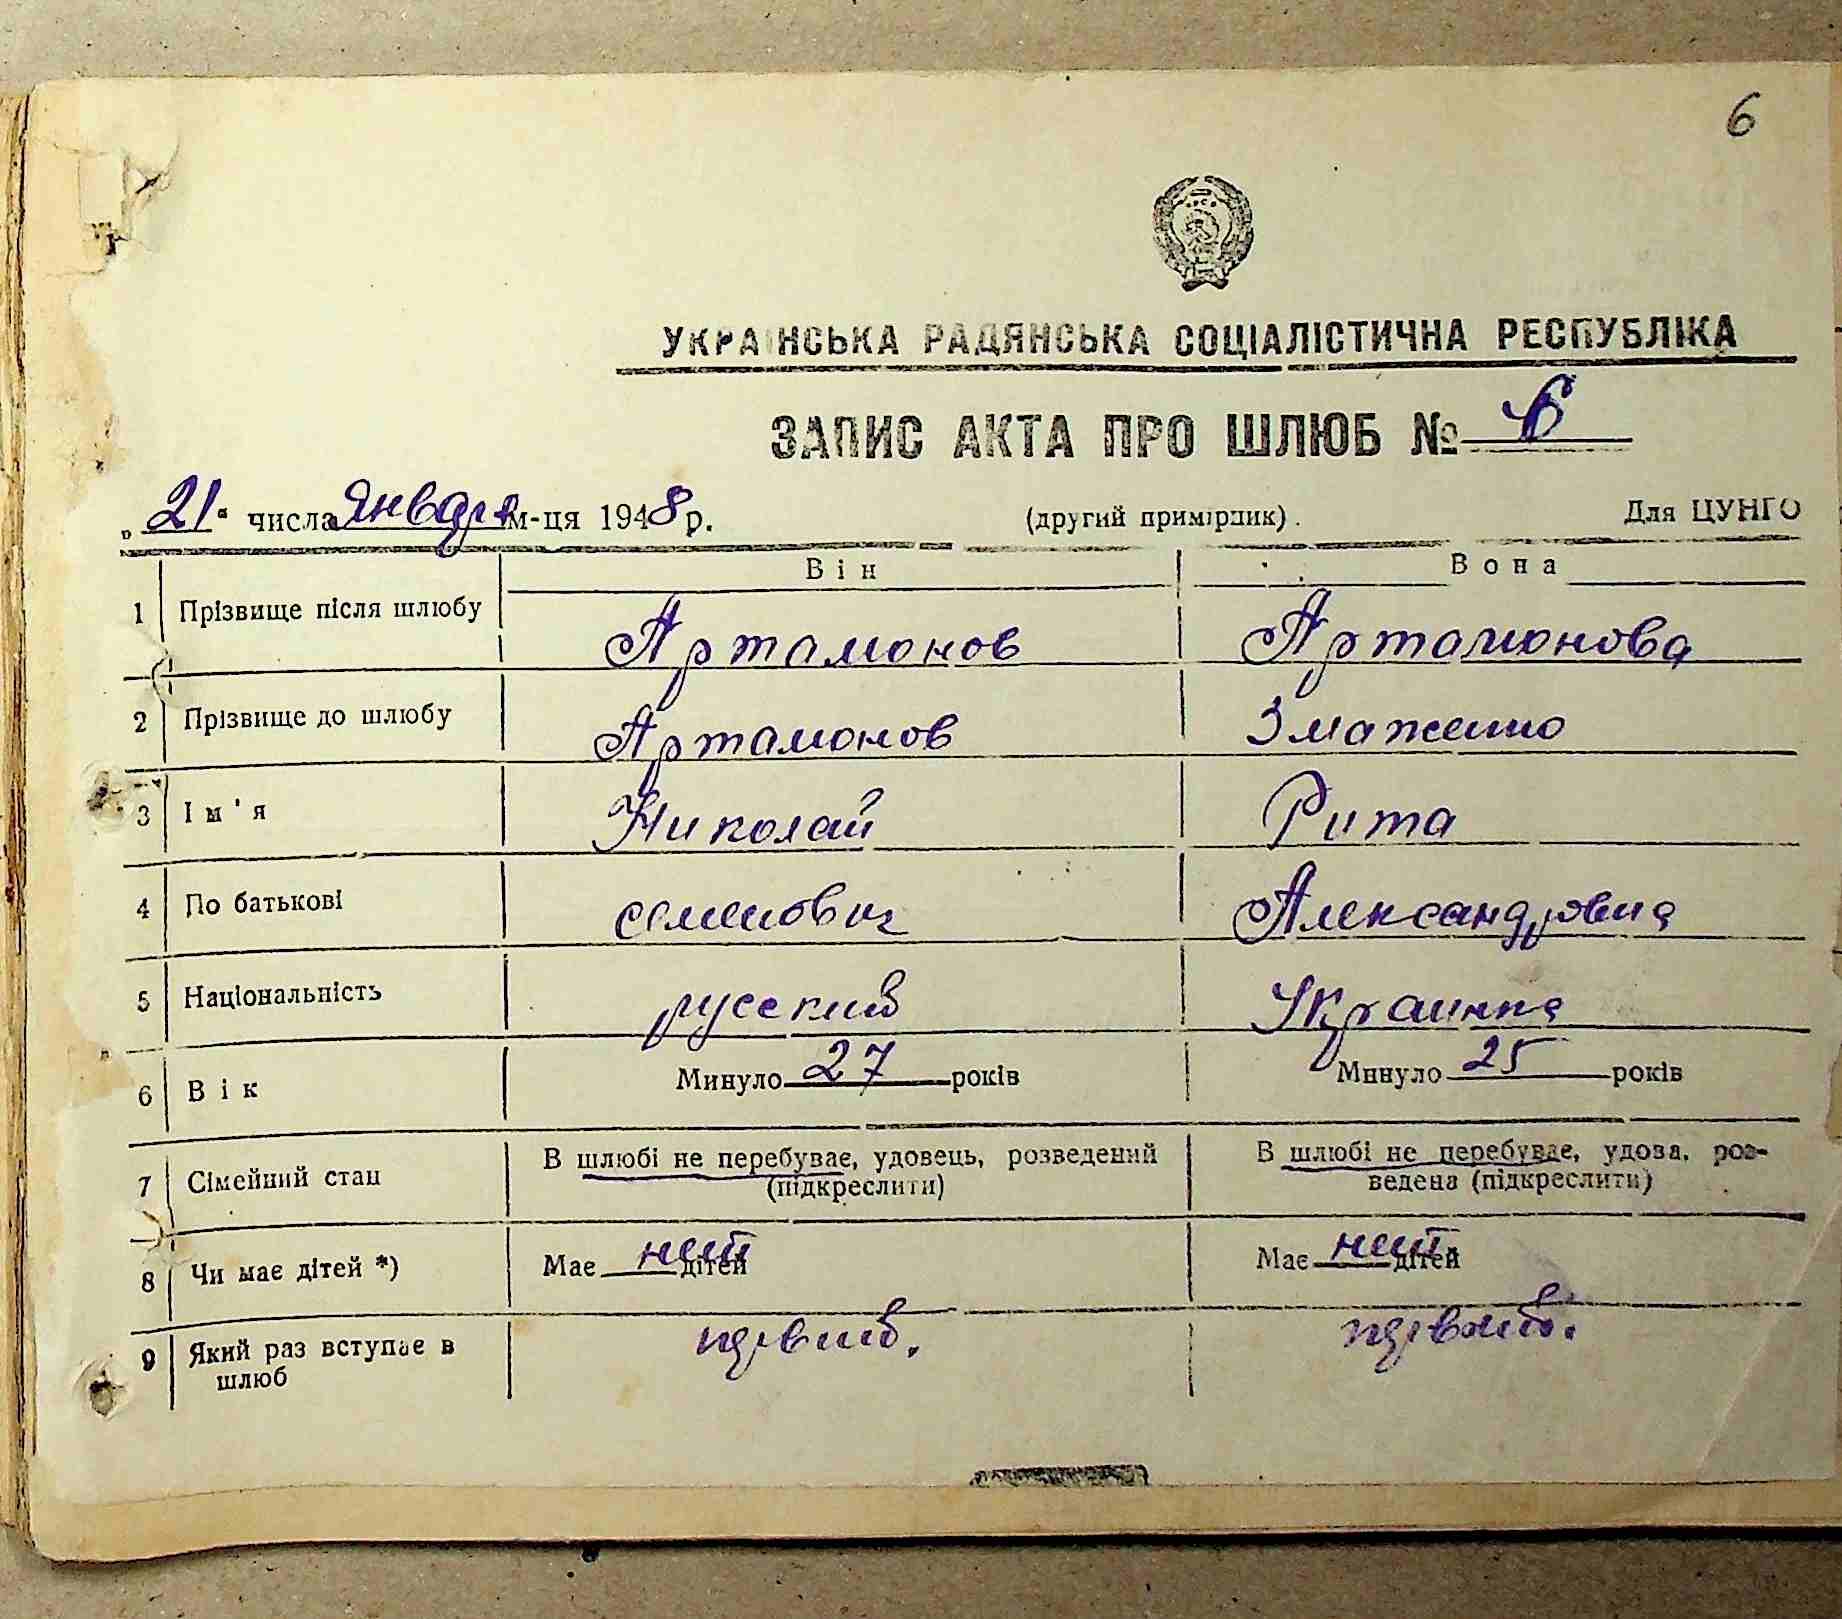 6
УКРАЇНСЬКА РАДЯНСЬКА СОЦІАЛІСТИЧНА РЕСПУБЛІКА
ЗАПИС АКТА ПРО ШЛЮБ № 6
„21“ числа января м-ця 1948 р. (другий примірник). Для ЦУНГО
Він Вона
1 Прізвище після шлюбу Артамонов Артамонова
2 Прізвище до шлюбу Артамонов
3 Ім'я Николай Рита
4 По батькові семенович Александровна
5 Національність русский Украинка
6 Вік Минуло 27 років Минуло 25 років
7 Сімейний стан В шлюбі не перебуває, удовець, розведений В шлюбі не перебуває, удова, роз-
(підкреслити) ведена (підкреслити)
8 Чи має дітей *) Має нет дітей Має нет дітей
9 Який раз вступає в первий. первый.
шлюб